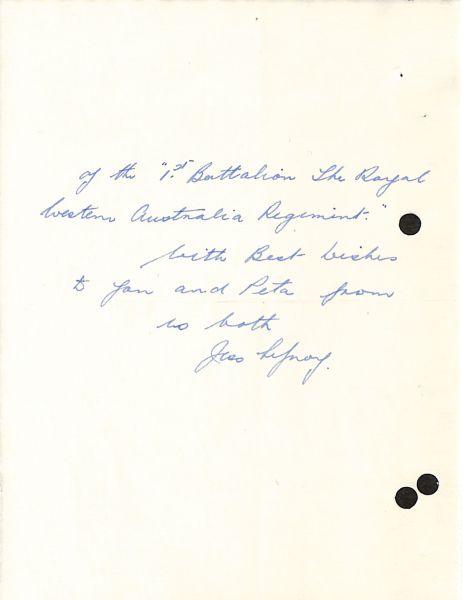 of the "1st Battalion The Royal
Western Australia Regiment."
With Best Wishes
to Jan and Peta from
us both
Jess Lefroy.